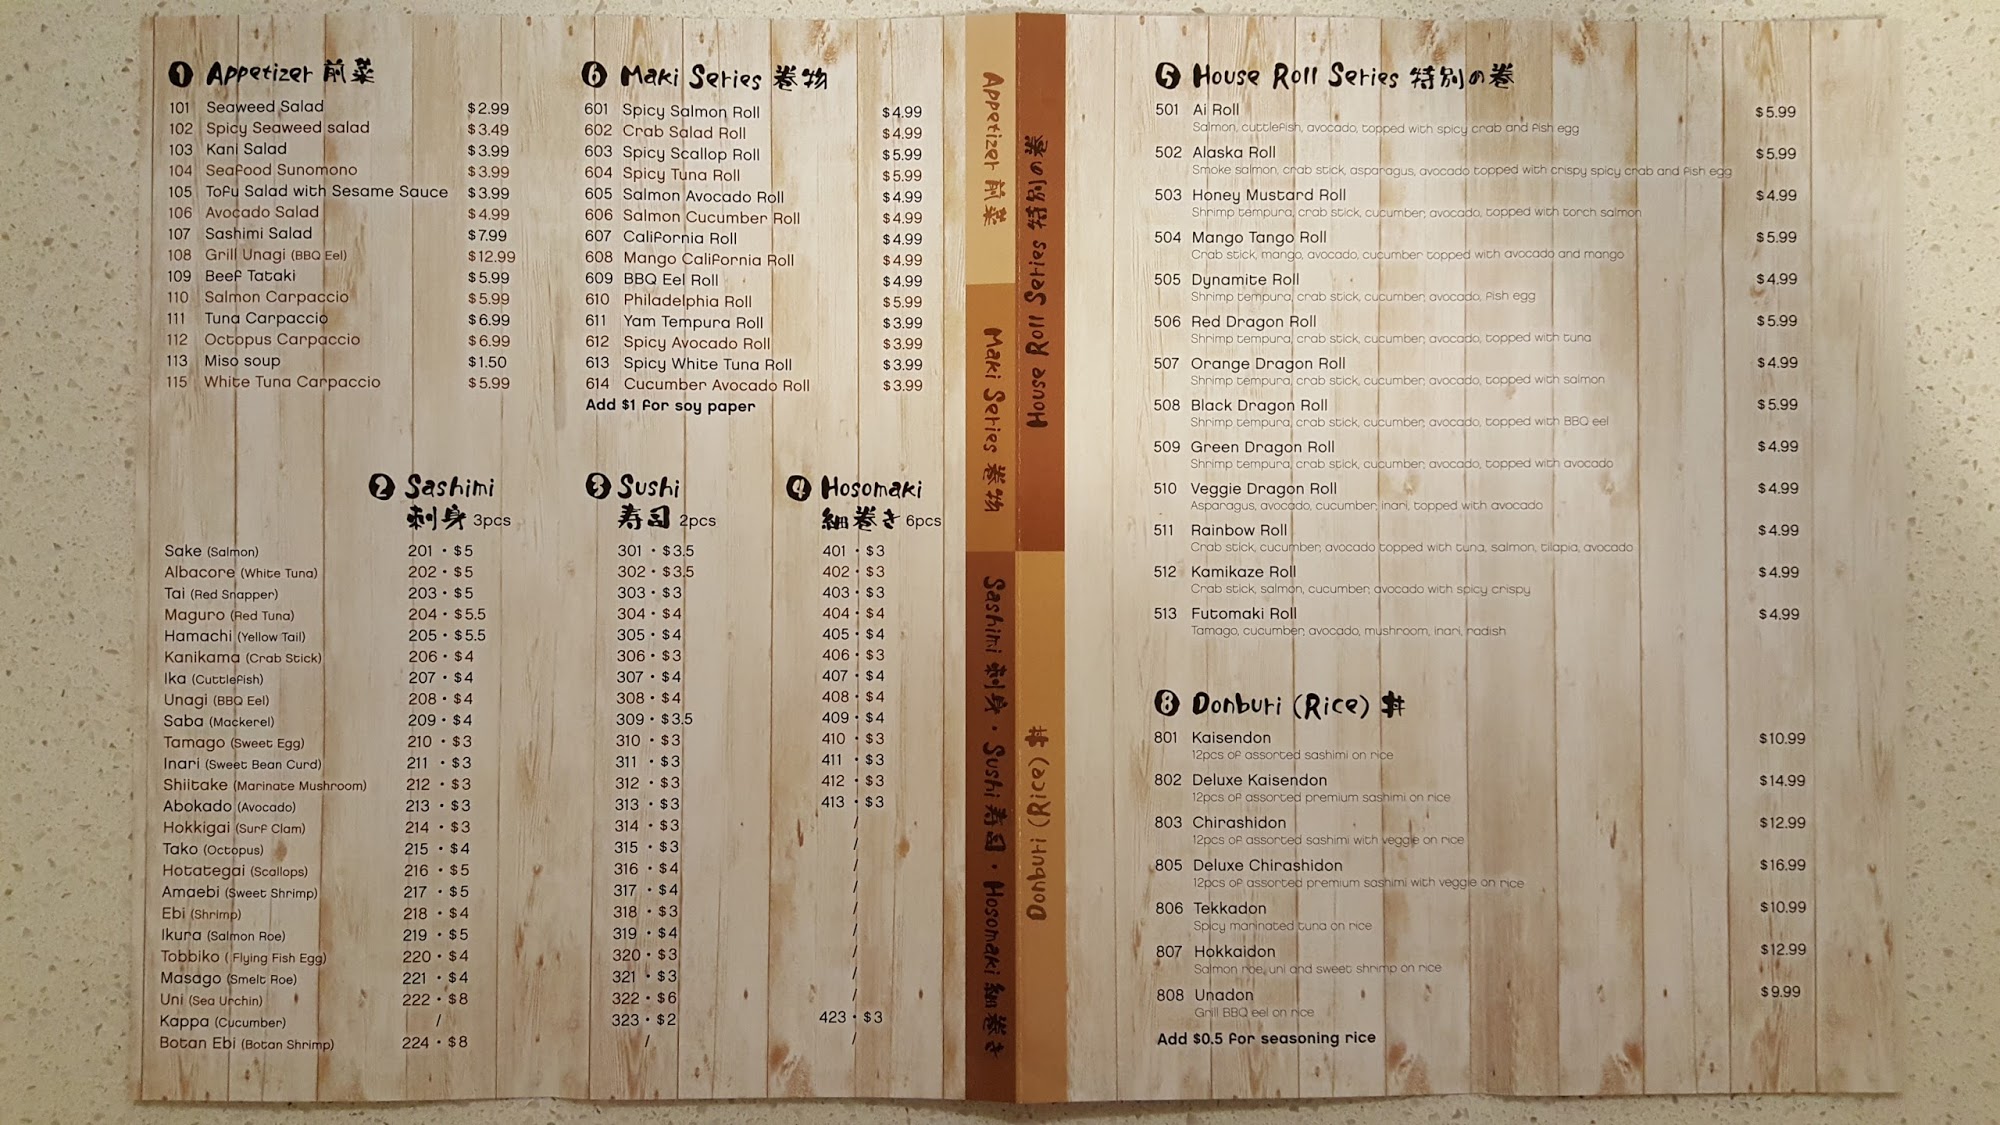 1 Appetizer 前菜
101 Seaweed Salad $2.99
102 Spicy Seaweed salad $3.49
103 Kani Salad $3.99
104 Seafood Sunomono $3.99
105 Tofu Salad with Sesame Sauce $3.99
106 Avocado Salad $4.99
107 Sashimi Salad $7.99
108 Grill Unagi (BBQ Eel) $12.99
109 Beef Tataki $5.99
110 Salmon Carpaccio $5.99
111 Tuna Carpaccio $6.99
112 Octopus Carpaccio $6.99
113 Miso soup $1.50
115 White Tuna Carpaccio $5.99
6 Maki Series 巻物
601 Spicy Salmon Roll $4.99
602 Crab Salad Roll $4.99
603 Spicy Scallop Roll $5.99
604 Spicy Tuna Roll $5.99
605 Salmon Avocado Roll $4.99
606 Salmon Cucumber Roll $4.99
607 California Roll $4.99
608 Mango California Roll $4.99
609 BBQ Eel Roll $4.99
610 Philadelphia Roll $5.99
611 Yam Tempura Roll $3.99
612 Spicy Avocado Roll $3.99
613 Spicy White Tuna Roll $3.99
614 Cucumber Avocado Roll $3.99
Add $1 for soy paper
2 Sashimi 3 Sushi 4 Hosomaki
刺身 3pcs 寿司 2pcs 細巻き 6pcs
Sake (Salmon) 201 • $5 301 • $3.5 401 • $3
Albacore (White Tuna) 202 • $5 302 • $3.5 402 • $3
Tai (Red Snapper) 203 • $5 303 • $3 403 • $3
Maguro (Red Tuna) 204 • $5.5 304 • $4 404 • $4
Hamachi (Yellow Tail) 205 • $5.5 305 • $4 405 • $4
Kanikama (Crab Stick) 206 • $4 306 • $3 406 • $3
Ika (Cuttlefish) 207 • $4 307 • $4 407 • $4
Unagi (BBQ Eel) 208 • $4 308 • $4 408 • $4
Saba (Mackerel) 209 • $4 309 • $3.5 409 • $4
Tamago (Sweet Egg) 210 • $3 310 • $3 410 • $3
Inari (Sweet Bean Curd) 211 • $3 311 • $3 411 • $3
Shiitake (Marinate Mushroom) 212 • $3 312 • $3 412 • $3
Abokado (Avocado) 213 • $3 313 • $3 413 • $3
Hokkigai (Surf Clam) 214 • $3 314 • $3 /
Tako (Octopus) 215 • $4 315 • $3 /
Hotategai (Scallops) 216 • $5 316 • $4 /
Amaebi (Sweet Shrimp) 217 • $5 317 • $4 /
Ebi (Shrimp) 218 • $4 318 • $3 /
Ikura (Salmon Roe) 219 • $5 319 • $4 /
Tobbiko ( Flying Fish Egg) 220 • $4 320 • $3 /
Masago (Smelt Roe) 221 • $4 321 • $3 /
Uni (Sea Urchin) 222 • $8 322 • $6 /
Kappa (Cucumber) / 323 • $2 423 • $3
Botan Ebi (Botan Shrimp) 224 • $8 / /
Appetizer 前菜
Maki Series 巻物
Sashimi 刺身 • Sushi 寿司 • Hosomaki 細巻き
House Roll Series 特別の巻
Donburi (Rice) 丼
5 House Roll Series 特別の巻
501 Ai Roll $5.99
Salmon, cuttlefish, avocado, topped with spicy crab and fish egg
502 Alaska Roll $5.99
Smoke salmon, crab stick, asparagus, avocado topped with crispy spicy crab and fish egg
503 Honey Mustard Roll $4.99
Shrimp tempura, crab stick, cucumber, avocado, topped with torch salmon
504 Mango Tango Roll $5.99
Crab stick, mango, avocado, cucumber topped with avocado and mango
505 Dynamite Roll $4.99
Shrimp tempura, crab stick, cucumber, avocado, fish egg
506 Red Dragon Roll $5.99
Shrimp tempura, crab stick, cucumber, avocado, topped with tuna
507 Orange Dragon Roll $4.99
Shrimp tempura, crab stick, cucumber, avocado, topped with salmon
508 Black Dragon Roll $5.99
Shrimp tempura, crab stick, cucumber, avocado, topped with BBQ eel
509 Green Dragon Roll $4.99
Shrimp tempura, crab stick, cucumber, avocado, topped with avocado
510 Veggie Dragon Roll $4.99
Asparagus, avocado, cucumber, inari, topped with avocado
511 Rainbow Roll $4.99
Crab stick, cucumber, avocado topped with tuna, salmon, tilapia, avocado
512 Kamikaze Roll $4.99
Crab stick, salmon, cucumber, avocado with spicy crispy
513 Futomaki Roll $4.99
Tamago, cucumber, avocado, mushroom, inari, radish
8 Donburi (Rice) 丼
801 Kaisendon $10.99
12pcs of assorted sashimi on rice
802 Deluxe Kaisendon $14.99
12pcs of assorted premium sashimi on rice
803 Chirashidon $12.99
12pcs of assorted sashimi with veggie on rice
805 Deluxe Chirashidon $16.99
12pcs of assorted premium sashimi with veggie on rice
806 Tekkadon $10.99
Spicy marinated tuna on rice
807 Hokkaidon $12.99
Salmon roe, uni and sweet shrimp on rice
808 Unadon $9.99
Grill BBQ eel on rice
Add $0.5 for seasoning rice